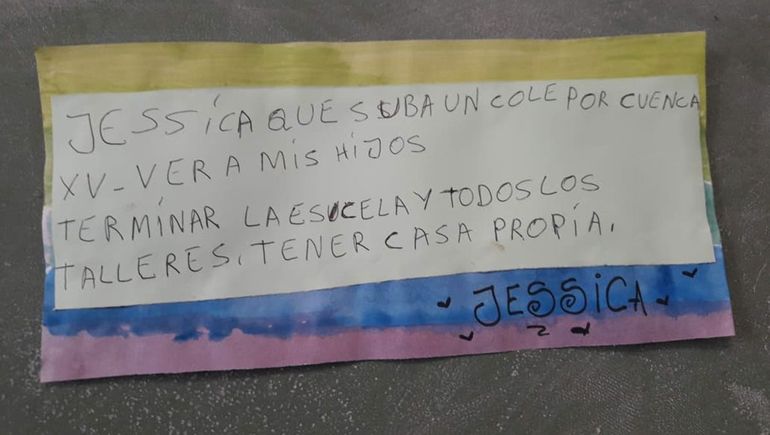 JESSíCA QUE SUBA UN COLE POR CUENCA
XV-VER A MiS HiJOS
TERMíNAR LA ESUCELA Y TODOS LOS
TALLERES, TENER CASA PROPíA.
JESSiCA